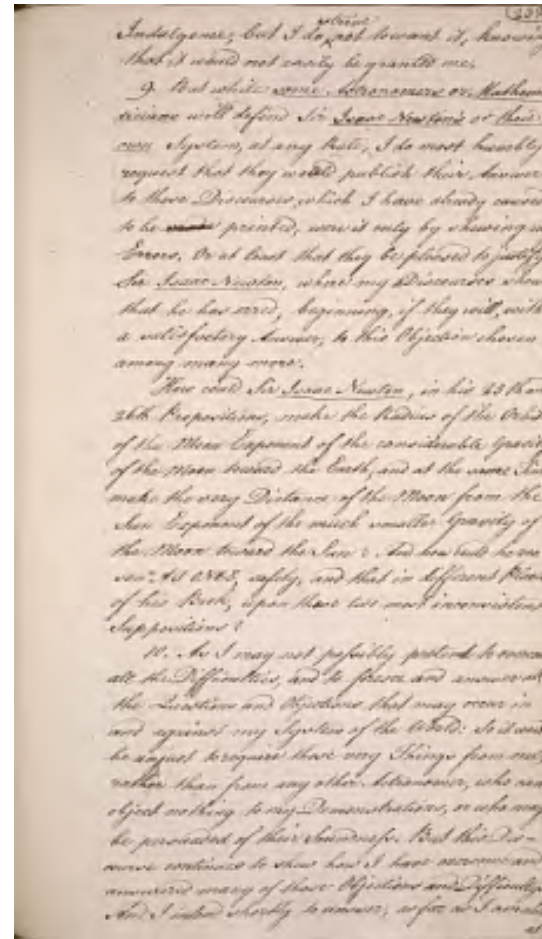 Indulgence, but I do not to want it, knowing
that it would not easily be granted me.
9. But while some Astronomers or Mathem
ticians will defend Sir Isaac Newton's or their
own System, at any Rate, I do most humbly
request that they would publish their Answer
to those Discourses, which I have already caused
to be printed, were it only by shewing
Errors, Or at least that they be pleased to justify
Sir Isaac Newton, where my Discourses shew
that he has erred, beginning, if they will, with
a satisfactory Answer, to this Objection chosen
among many more.
How could Sir Isaac Newton, in his 25th
26th Propositions, make the Radius of the Orbit
of the Moon Exponent of the considerable Gravity
of the Moon toward the Earth, and at the same Time
make the very Distance of the Moon from the
Sun Exponent of the much smaller Gravity of
the Moon toward the Sun? And how could he
AT ONCE, safely, and that in different Places
of his Book, upon those two most inconsistent
Suppositions?
10. As I may not possibly pretend to
all the Difficulties, and to foresee and answer all
the Questions and Objections, that may occur in
and against my System of the World: So it would
be unjust to require those very Things from me,
rather than from any other Astronomer, who can
object nothing to my Demonstrations, or who may
be persuaded of their Soundness. But this Dis-
course continues to shew how I have overcome and
answered many of those Objections and Difficulties
And I intend shortly to answer, as far as I am able